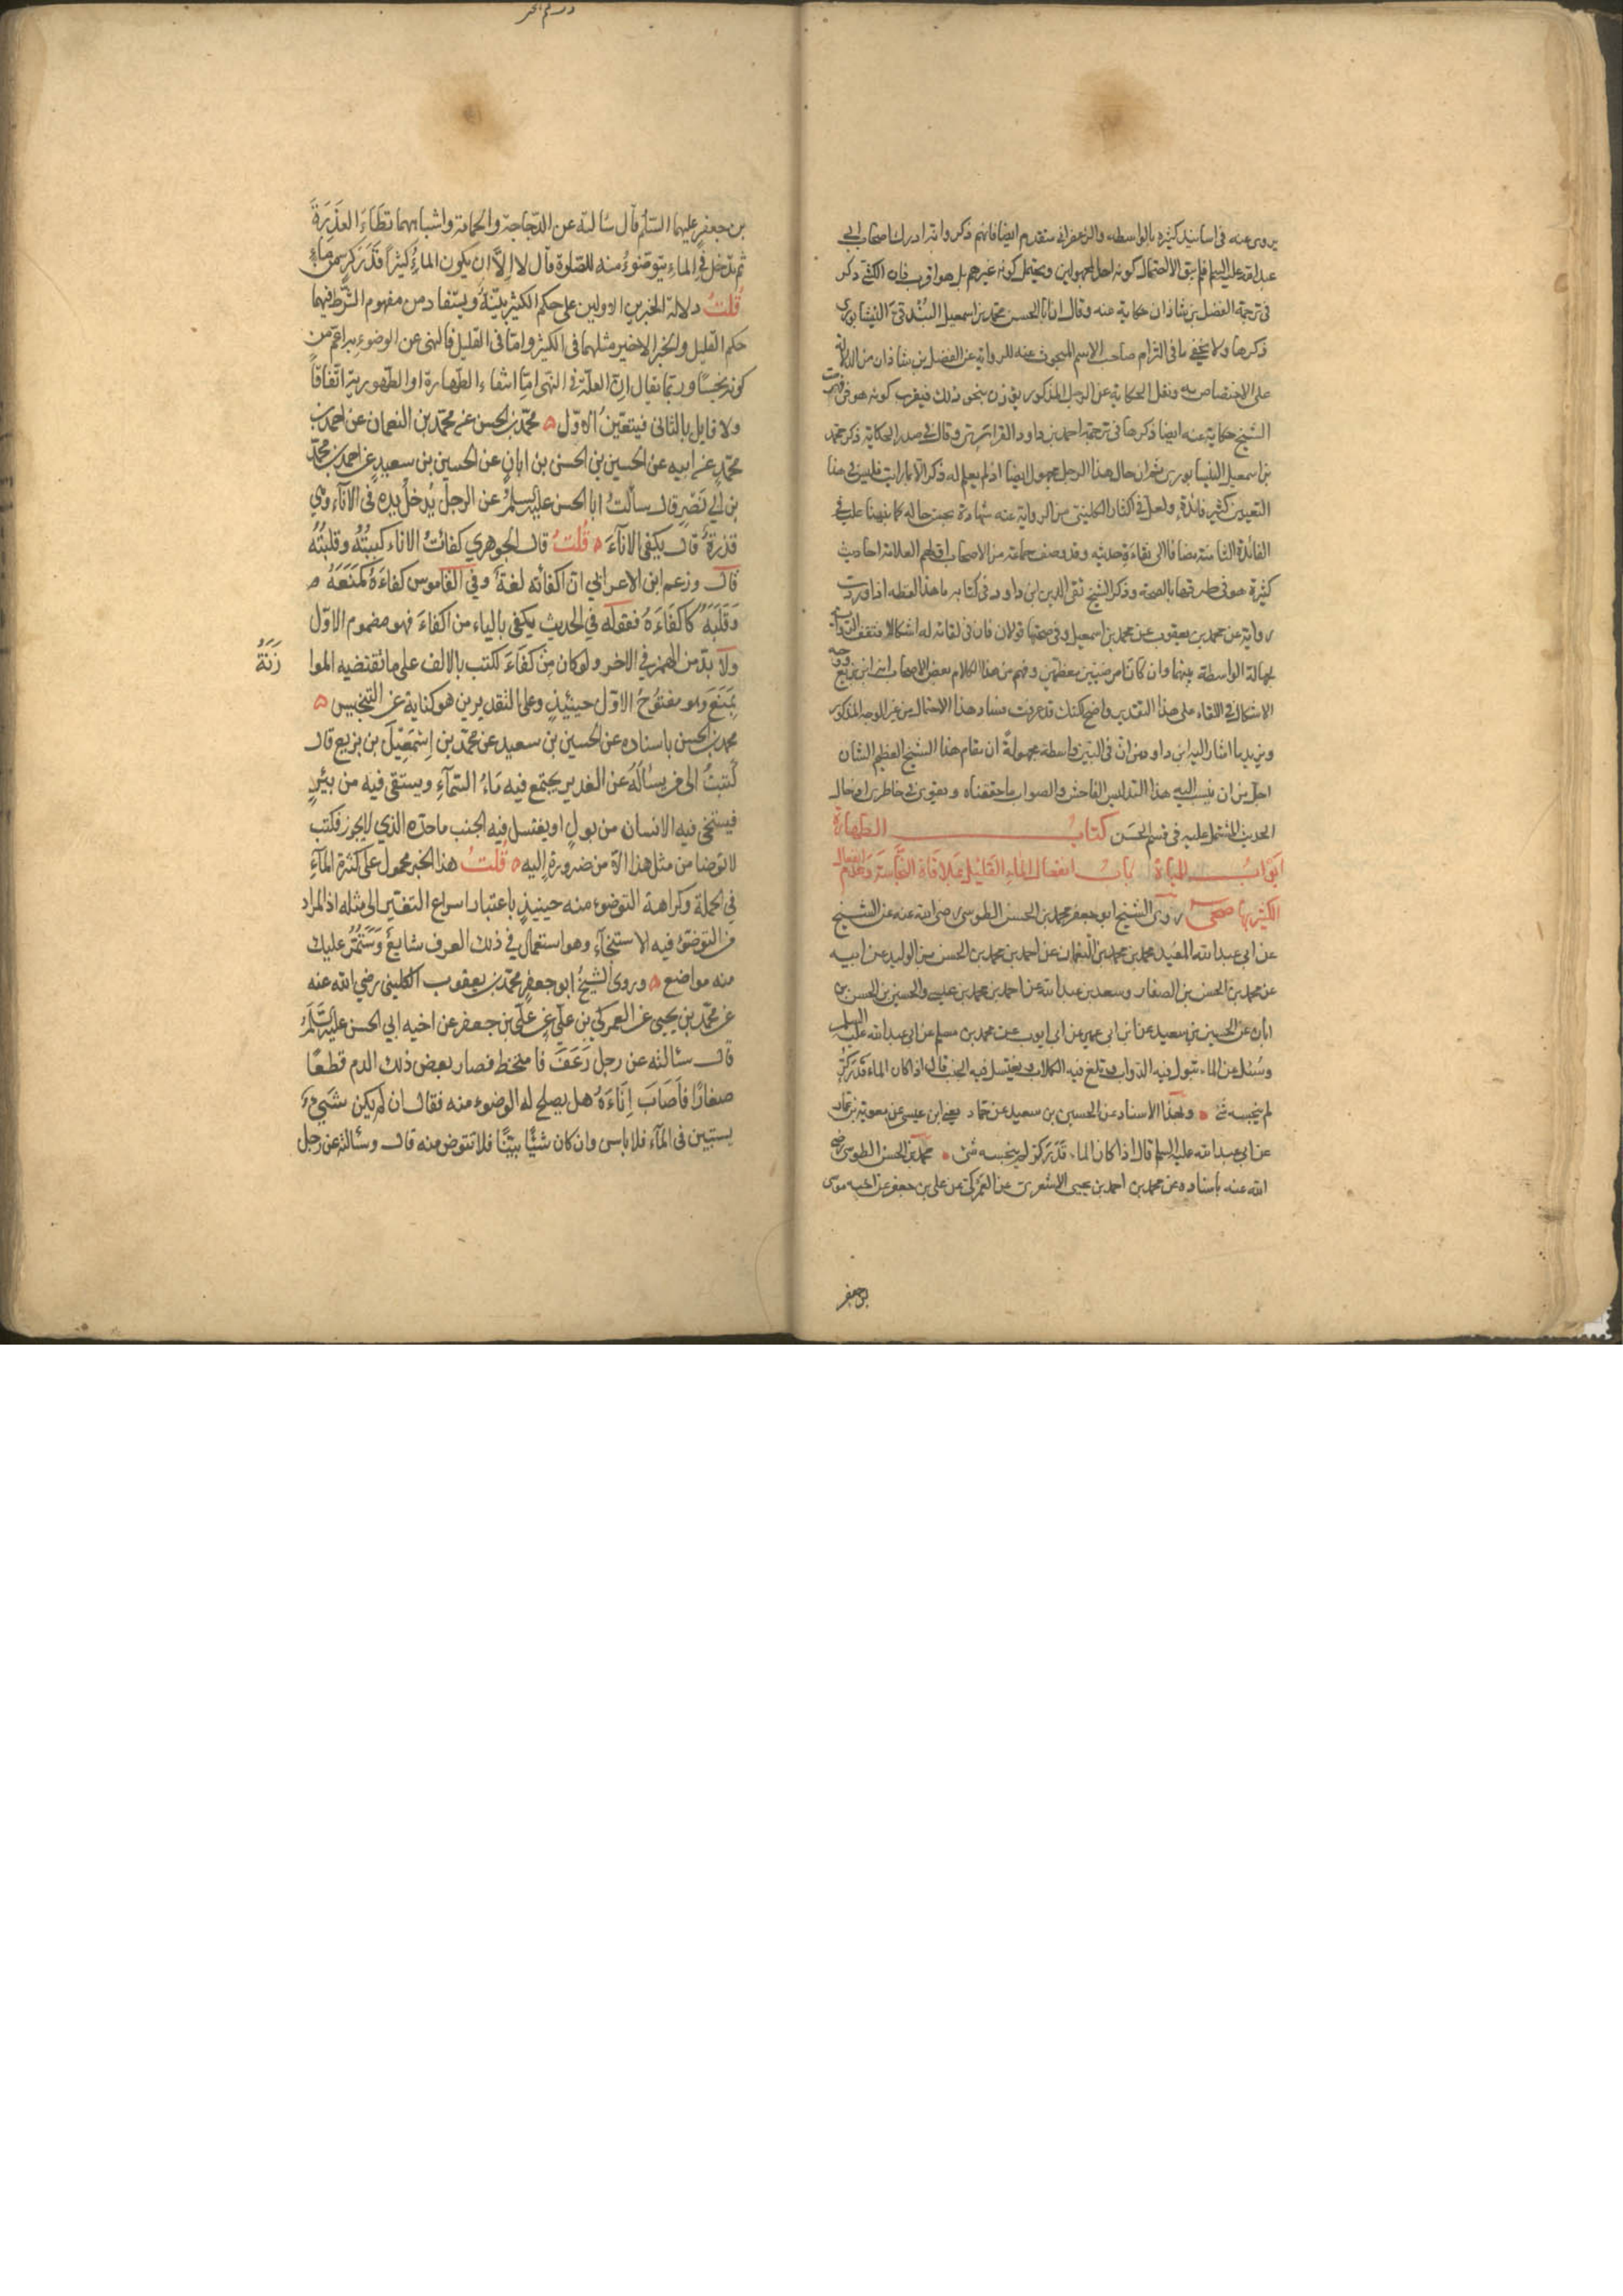 يروى عنه فى اسانيد كثيرة بالواسطه والزعفرانى متقدم ايضا فانهم ذكروا انه ادرك اصحاب ابى
عبد الله عليه السلم فلم يبق الا احتمال كونه احد المجهولين ويحتمل كونه غيرهم بل هو اقرب فان الكشى ذكر
فى ترجمة الفضل بن شاذان حكاية عنه وقال ان ابا الحسن محمد بن اسمعيل البندقى النيشابورى
ذكرها ولا يخفى ما فى التزام صاحب الاسم المبحوث عنه للرواية عن الفضل بن شاذان من الدلالة
على الاختصاص به ونقل الحكاية عن الرجل المذكور يؤذن بنحو ذلك فيقرب كونه هو وفى فهرست
الشيخ حكاية عنه ايضا ذكرها فى ترجمة احمد بن داود الفزارى وقال فى صدر الحكاية ذكر محمد
بن اسمعيل النيسابورى ثم ان حال هذا الرجل مجهول ايضا اذ لم يعلم له ذكر الا بما رايت فليس فى هذا
التعيين كثير فائدة ولعل فى اكثار الكلينى من الرواية عنه شهادة بحسن حاله كما نبهنا عليه فى
الفائدة الثامنة مضافا الى نقاءة حديثه وقد وصف جماعة من الاصحاب اولهم العلامة احاديث
كثيرة هو فى طرقها بالصحة وذكر الشيخ تقى الدين ابن داود فى كتابه ما هذا لفظه اذا وردت
رواية عن محمد بن يعقوب عن محمد بن اسمعيل ففى صحتها قولان فان فى لقائه له اشكالا فتقف الرواية
لجهالة الواسطة بينهما وان كانا مرضيين معظمين وفهم من هذا الكلام بعض الاصحاب انه ابن بزيع ووجه
الاشكال فى اللقاء على هذا التقدير واضح لكنك قد عرفت فساد هذا الاحتمال من غير الوجه المذكور
ويزيد ما اشار اليه ابن داود من ان فى البين واسطة مجهولة ان مقام هذا الشيخ العظيم الشان
اجل من ان ينسب اليه هذا التدليس الفاحش والصواب ما حققناه ويقوى فى خاطرى ادخال
الحديث المشتمل عليه فى قسم الحسن كتاب الطهارة
ابواب المياه باب انفعال الماء القليل بملاقاة النجاسة وعدم انفعال
الكثير بها صحى روى الشيخ ابو جعفر محمد بن الحسن الطوسى رضى الله عنه عن الشيخ
عن ابى عبد الله المفيد محمد بن محمد بن النعمان عن احمد بن محمد بن الحسن بن الوليد عن ابيه
عن محمد بن الحسن الصفار وسعد بن عبد الله عن احمد بن محمد بن عيسى والحسين بن الحسن بن
ابان عن الحسين بن سعيد عن ابن ابى عمير عن ابى ايوب عن محمد بن مسلم عن ابى عبد الله عليه السلم
وسئل عن الماء تبول فيه الدواب وتلغ فيه الكلاب ويغتسل فيه الجنب قال اذا كان الماء قدر كر
لم ينجسه شئ وبهذا الاسناد عن الحسين بن سعيد عن حماد يعنى ابن عيسى عن معوية بن عمار
عن ابى عبد الله عليه السلم قال اذا كان الماء قدر كر لم ينجسه شئ محمد بن الحسن الطوسى رضى
الله عنه باسناده عن محمد بن احمد بن يحيى الاشعرى عن العمركى عن على بن جعفر عن اخيه موسى
بن جعفر
بن جعفر عليهما السلم قال سالته عن الدجاجة والحمامة واشباههما تطاء العذرة
ثم تدخل فى الماء يتوضوء منه للصلوة قال لا الا ان يكون الماء كثيراً قدر كر من ماء
قلت دلالة الخبرين الاولين على حكم الكثير بينة ويستفاد من مفهوم الشرط فيهما
حكم القليل والخبر الاخير مثلهما فى الكثير واما فى القليل فالنهى عن الوضوء به اعم من
كونه نجسًا وربما يقال ان العلة فى النهى اما انتفاء الطهارة او الطهورية اتفاقاً
ولا قايل بالثانى فيتعين الاول محمد بن الحسن عن محمد بن النعمان عن احمد بن
محمد عن ابيه عن الحسين بن الحسن بن ابان عن الحسين بن سعيد عن احمد بن محمد
بن ابى نصر قال سالت ابا الحسن عليه السلم عن الرجل يدخل يده فى الاناء وهى
قذرة قال يكفى الاناء قلت قال الجوهري كفات الاناء كببته وقلبته
قال وزعم ابن الاعرابي ان اكفأته لغة وفي القاموس كفاءه كمنعه
وقلبه كاكفاءه فقوله في الحديث يكفى بالياء من اكفاء فهو مضموم الاول
ولا بد من الهمز في الاخر ولو كان من كفاء لكتب بالالف على ما تقتضيه الموا
زنة
بمنع وهو مفتوح الاول حينئذٍ وعلى التقديرين هو كناية عن التنجيس
محمد بن الحسن باسناده عن الحسين بن سعيد عن محمد بن اسمعيل بن بزيع قال
كتبت الى من يساله عن الغدير يجتمع فيه ماء السماء ويستقى فيه من بئر
فيستنجى فيه الانسان من بول او يغتسل فيه الجنب ما حده الذي لا يجوز فكتب
لا توضا من مثل هذا الا من ضرورة اليه قلت هذا الخبر محمول على كثرة الماء
في الجملة وكراهة التوضوء منه حينيذ باعتبار اسراع التغير الى مثله اذ المراد
من التوضوء فيه الاستنجاء وهو استعمال في ذلك العرف شايع وستمر عليك
منه مواضع وروى الشيخ ابو جعفر محمد بن يعقوب الكلينى رضي الله عنه
عن محمد بن يحيى عن العمركي بن على عن على بن جعفر عن اخيه ابي الحسن عليه السلم
قال سئالته عن رجل رعف فامتخط فصار بعض ذلك الدم قطعًا
صغارًا فاصاب اناءه هل يصلح له الوضوء منه فقال ان لم يكن شيىء
يستبين فى الماء فلا باس وان كان شيئًا بينًا فلا تتوض منه قال وسئالته عن رجل